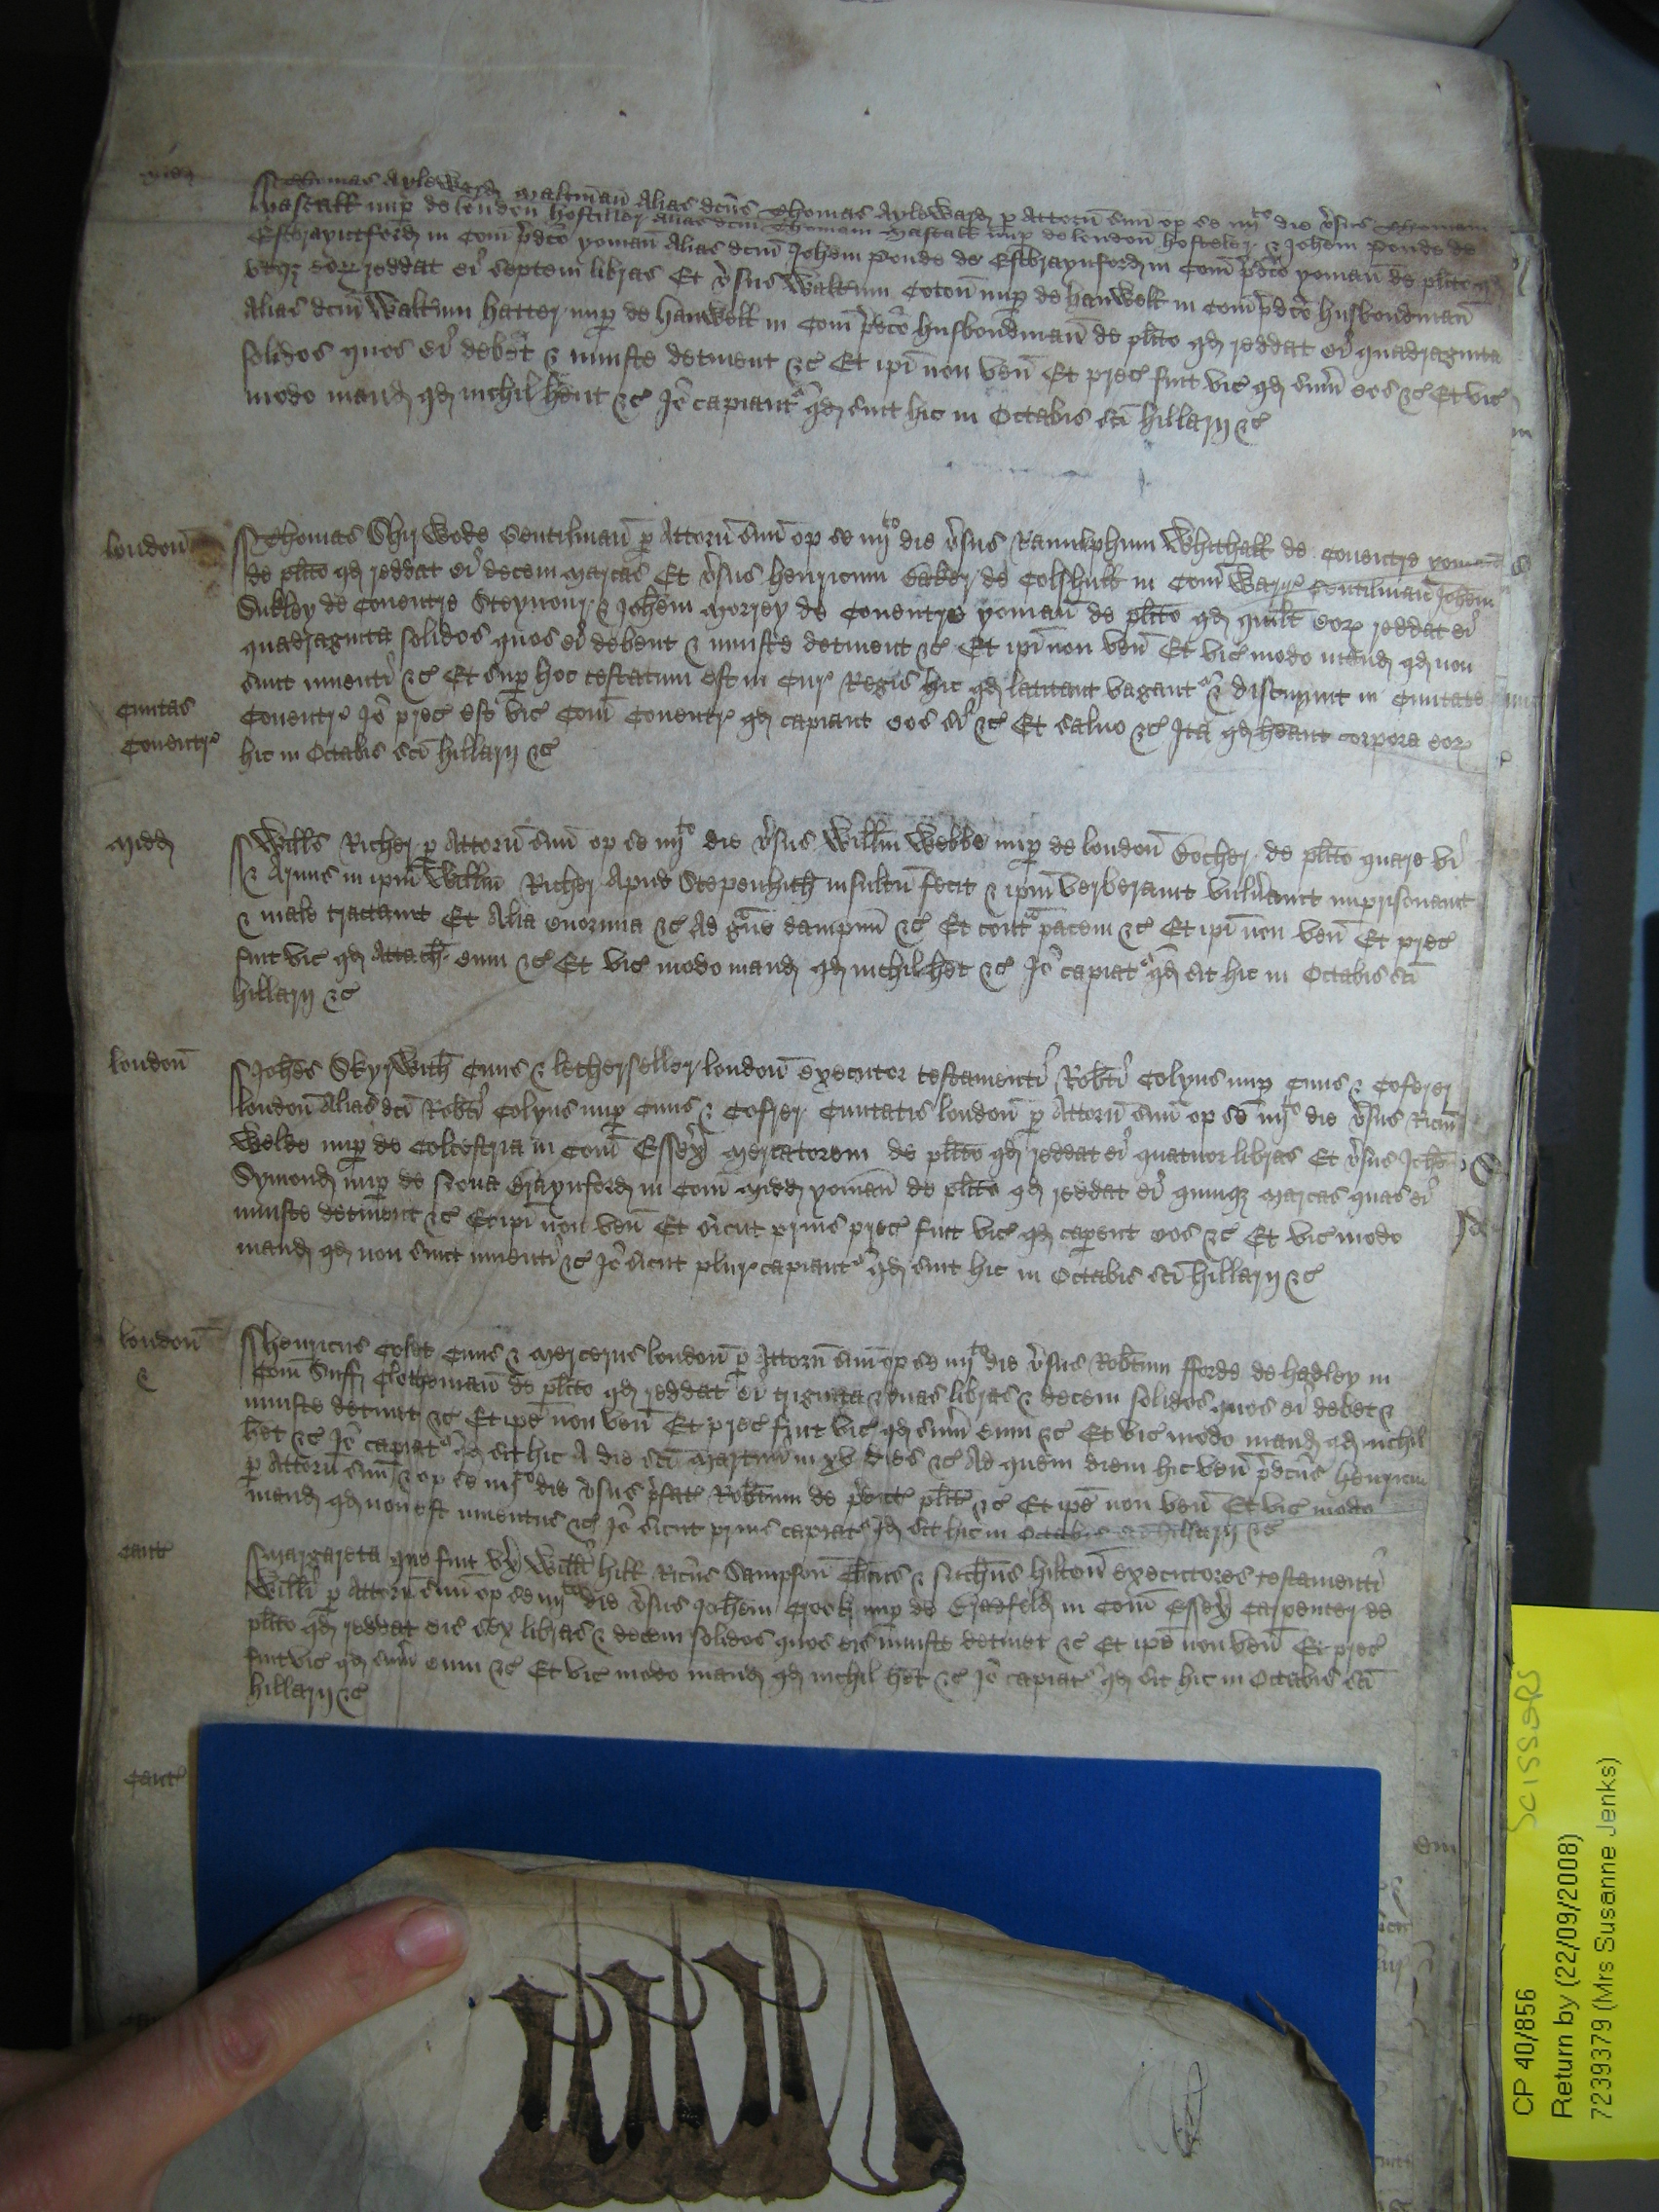 Midd
Thomas Ayleward Maltman Alias dcus Thomas Ayleward p Attorn suu op se iiijto die vsus Thomam
Pascall nup de london hostiller alias dcm Thomam Pascall nup de london hosteler & Johem Ponde de
Estbrayntford in Com pdco yoman Alias dcm Johem Ponde de Estbraynford in Com pdco yoman de plito qd
utq eor reddat ei septem libras Et vsus Waltum Coton nup de hanwell in Com pdco husbondman
Alias dcm Waltum hatter nup de hanwell in Com pdco husbondman de plito qd reddat ei quadraginta
solidos quos ei debet & iniuste detinent &c Et ipi non ven Et prec fuit vic qd sum eos &c Et vic
modo mand qd nichil hent &c Io capiantr qd sint hic in Octabis sci hillarij &c
london
Thomas Shirwode Gentilman p Attorn suu op se iiijto die vsus Rannulphum Whithall de Coventre yoman
de plito qd reddat ei decem marcas Et vsus henricum Baker de Colshull in Com Warr Gentilman Johem
Sukley de Coventre Steynour & Johem Morrey de Coventre yoman de plito qd quilt eor reddat ei
quadraginta solidos quos ei debent & iniuste detinent &c Et ipi non ven Et vic modo mand qd non
sunt inventi &c Et sup hoc testatum est in Cur Regis hic qd latitant vagantr & discurrunt in Civitate
Civitas
Coventr Io prec est vic Com Coventr qd capiant eos si &c Et salvo &c Ita qd heant corpora eor
Coventr
hic in Octabis sci hillarij &c
Midd
Wills Richer p Attorn suu op se iiijto die vsus Willm Webbe nup de london Bocher de plito quare vi
& Armis in ipm Willm Richer Apud Stepenhith insultu fecit & ipm verberavit vulnavit imprisonavit
& male tractavit Et Alia enormia &c Ad gve dampnu &c Et contra pacem &c Et ipi non ven Et prec
fuit vic qd Attach eum &c Et vic modo mand qd nichil het &c Io capiatr qd sit hic in Octabis sci
hillarij &c
london
Johes Skyrwith Civis & letherseller london executor testamenti Robti Colyns nup Civis & Coferer
london Alias dci Robti Colyns nup Civis & Cofrer Civitatis london p Attorn suu op se iiijto die vsus Ricm
Welde nup de Colcestria in Com Essex Mercatorem de plito qd reddat ei quatuor libras Et vsus Johem
Symond nup de Braynford in Com Midd yoman de plito qd reddat ei quinq marcas quas ei
iniuste detinent &c Et ipi non ven Et sicut prius prec fuit vic qd caperet eos &c Et vic modo
mand qd non sunt inventi &c Io sicut plur capiantr qd sint hic in Octabis sci hillarij &c
london
henricus Colet Civis & Mercerus london p Attorn suu op se iiijto die vsus Robtum fforde de hadley in
Com Suff Clotheman de plito qd reddat ei triginta & duas libras & decem solidos quos ei debet &
iniuste detinet &c Et ipe non ven Et prec fuit vic qd sum eum &c Et vic modo mand qd nichil
het &c Io capiatr qd sit hic A die sci Martini in xv dies &c Ad quem diem hic ven pdcus henricus
p Attorn suu & op se iiijto die vsus pfat Robtum de pdict plito &c Et ipe non ven Et vic modo
mand qd non est inventus &c Io sicut prius capiatr qd sit hic in Octabis sci hillarij &c
Cant
Margareta que fuit ux Willi hill Ricus Sampson Clicus & hilton executores testamenti
Willi p Attorn suu op se iiijto die vsus Johem nup de Bradfeld in Com Essex Carpenter de
plito qd reddat eis sex libras & decem solidos quos eis iniuste detinet &c Et ipe non ven Et prec
fuit vic qd sum eum &c Et vic modo mand qd nichil het &c Io capiatr qd sit hic in Octabis sci
hillarij &c
Cant
SCISSORS
CP 40/856
Return by (22/09/2008)
7239379 (Mrs Susanne Jenks)